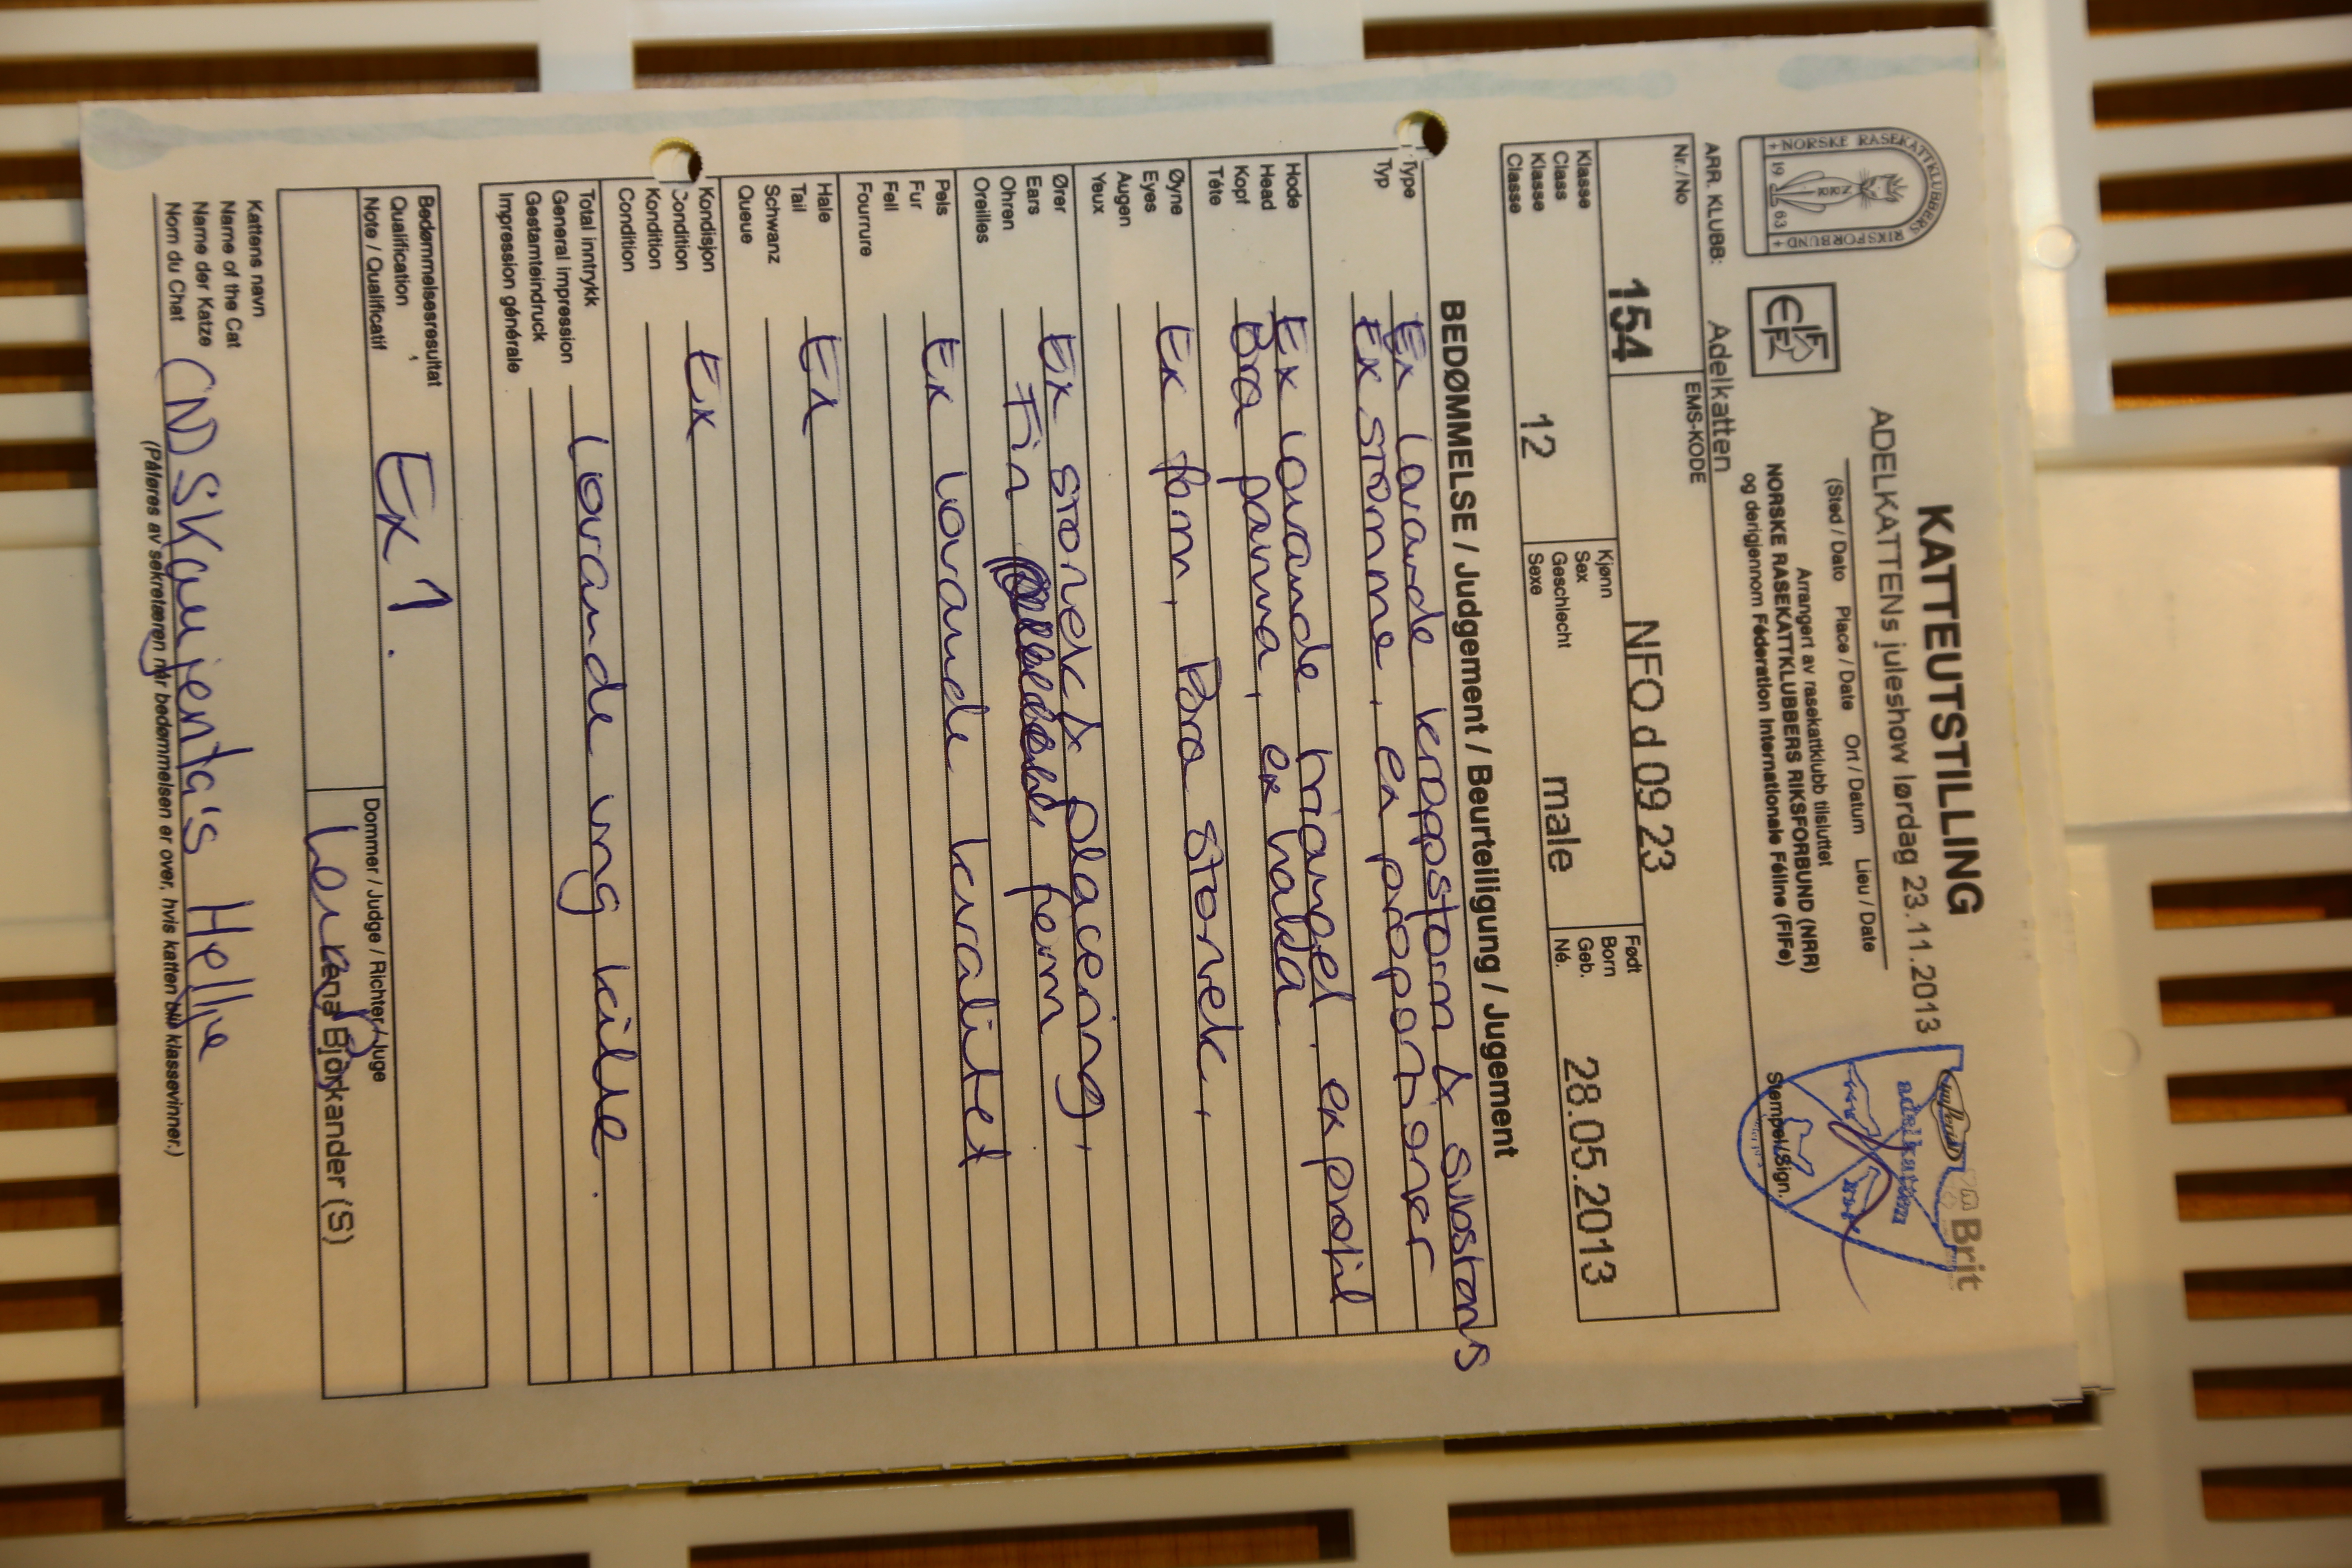 KATTEUTSTILLING
ADELKATTENS juleshow lørdag 23.11.2013
(Sted / Dato Place / Date Ort / Datum Lieu / Date
Arrangert av rasekattklubb tilsluttet
NORSKE RASEKATTKLUBBERS RIKSFORBUND (NRR)
og derigjennom Féderation Internationale Féline (FIFe)
+NORSKE RASEKATTKLUBBERS RIKSFORBUND+
NRR
19 63
FIFe
Brit
adelkatten
Stempel/Sign.
ARR. KLUBB: Adelkatten
Nr./No 154
EMS-KODE NFO d 09 23
Klasse
Class
Klasse
Classe
12
Kjønn
Sex
Geschlecht
Sexe
male
Født
Born
Geb.
Né.
28.05.2013
BEDØMMELSE / Judgement / Beurteiligung / Jugement
Type Ex lovande kroppsform & substans
Typ Ex stomme, ex propotioner
Hode Ex lovande triangel. ex profil
Head Bra panna, ex haka
Kopf
Téte
Øyne Ex form, Bra storlek,
Eyes
Augen
Yeux
Ører Ex storlek & placering,
Ears Fin form
Ohren
Oreilles
Pels Ex lovande kvalitet
Fur
Fell
Fourrure
Hale Ex
Tail
Schwanz
Queue
Kondisjon Ex
Condition
Kondition
Condition
Total inntrykk Lovande ung kille.
General impression
Gestamteindruck
Impression générale
Bedømmelsesresultat
Qualification
Note / Qualificatif
Ex 1.
Dommer / Judge / Richter / Juge
Lena Björkander (S)
Kattens navn
Name of the Cat
Name der Katze
Nom du Chat (N) Skaujenta's Hellje
(Påføres av sekretæren når bedømmelsen er over, hvis katten blir klassevinner.)